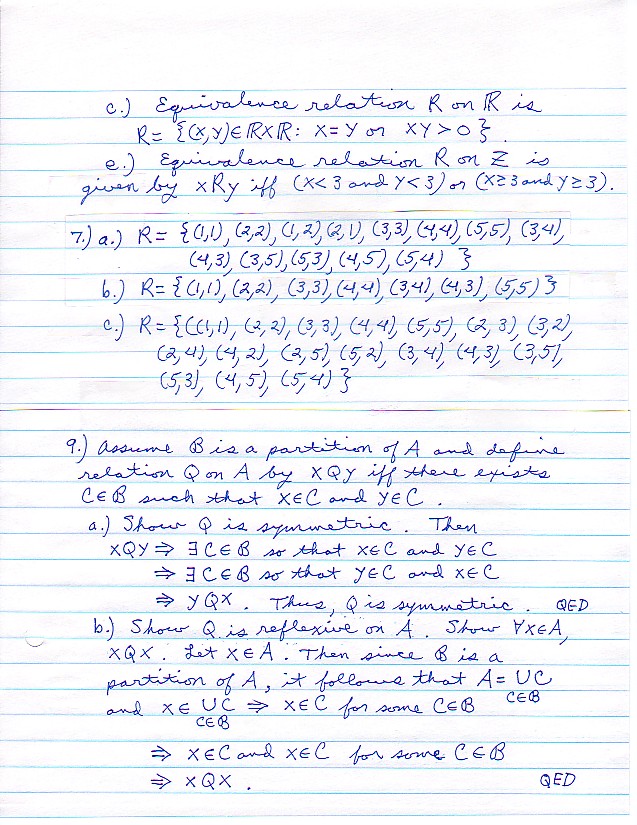 c.) Equivalence relation R on ℝ is
R = {(x,y)∈ ℝXℝ: x=y or xy>0}.
e.) Equivalence relation R on ℤ is
given by xRy iff (x<3 and y<3) or (x≥3 and y≥3).
7.) a.) R = {(1,1), (2,2), (1,2), (2,1), (3,3), (4,4), (5,5), (3,4),
(4,3), (3,5), (5,3), (4,5), (5,4) }
b.) R = {(1,1), (2,2), (3,3), (4,4), (3,4), (4,3), (5,5)}
c.) R = {((1,1), (2,2), (3,3), (4,4), (5,5), (2,3), (3,2),
(2,4), (4,2), (2,5), (5,2), (3,4), (4,3), (3,5),
(5,3), (4,5), (5,4)}
9.) Assume B is a partition of A and define
relation Q on A by xQy iff there exists
C∈B such that x∈C and y∈C.
a.) Show Q is symmetric. Then
xQy ⇒ ∃C∈B so that x∈C and y∈C
⇒ ∃C∈B so that y∈C and x∈C
⇒ yQx. Thus, Q is symmetric. QED
b.) Show Q is reflexive on A. Show ∀x∈A,
xQx. Let x∈A. Then since B is a
partition of A, it follows that A = ∪C
C∈B
and x∈ ∪C ⇒ x∈C for some C∈B
C∈B
⇒ x∈C and x∈C for some C∈B
⇒ xQx. QED